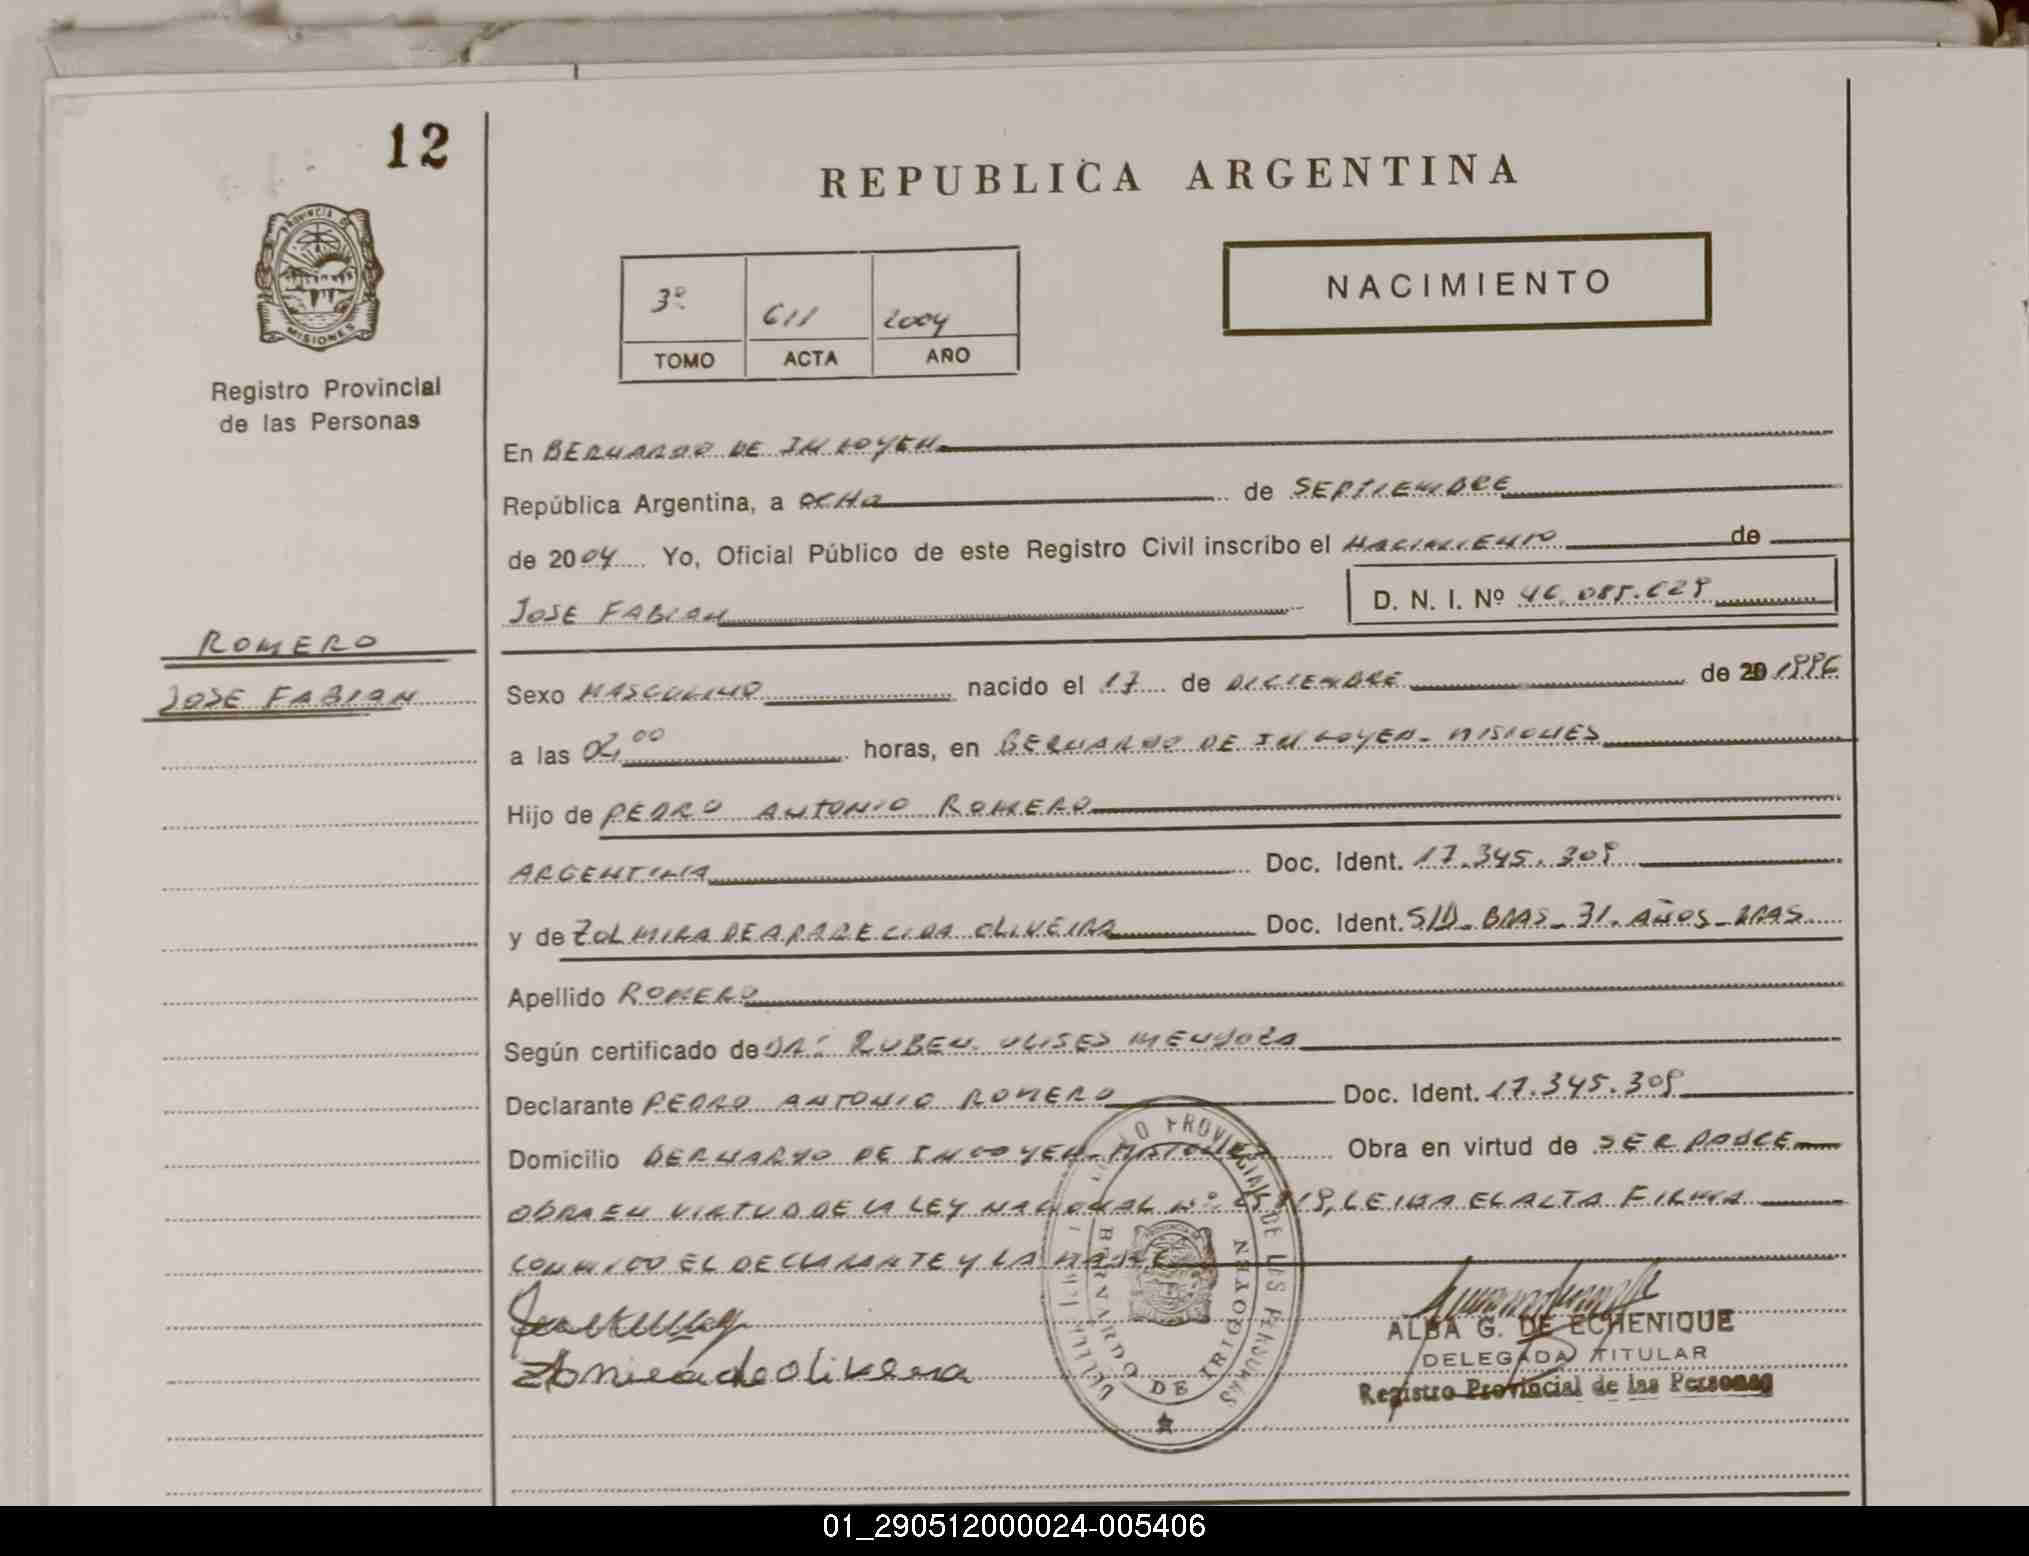 12
REPUBLICA ARGENTINA
PROVINCIA DE
MISIONES
Registro Provincial
de las Personas
3º 611 2004
TOMO ACTA AÑO
NACIMIENTO
En BERNARDO DE IRIGOYEN
República Argentina, a OCHO de SEPTIEMBRE
de 2004 Yo, Oficial Público de este Registro Civil inscribo el NACIMIENTO de
JOSE FABIAN D. N. I. Nº 46.085.629
ROMERO
JOSE FABIAN
Sexo MASCULINO nacido el 17 de DICIEMBRE de 20 1996
a las 04,00 horas, en BERNARDO DE IRIGOYEN - MISIONES
Hijo de PEDRO ANTONIO ROMERO
ARGENTINA Doc. Ident. 17.345.309
y de ZOLMIRA DE APARECIDA OLIVEIRA Doc. Ident. S/D - BRAS - 31 AÑOS - BRAS
Apellido ROMERO
Según certificado de DR: RUBEN ULISES MENDOZA
Declarante PEDRO ANTONIO ROMERO Doc. Ident. 17.345.309
Domicilio BERNARDO DE IRIGOYEN - MISIONES Obra en virtud de SER PADRE
OBRA EN VIRTUD DE LA LEY NACIONAL Nº 25.819, LEIDA EL ACTA FIRMA
CONMIGO EL DECLARANTE Y LA MADRE
PROVINCIAL DE LAS PERSONAS
BERNARDO DE IRIGOYEN
ALBA G. DE ECHENIQUE
DELEGADA TITULAR
Registro Provincial de las Personas
01_290512000024-005406